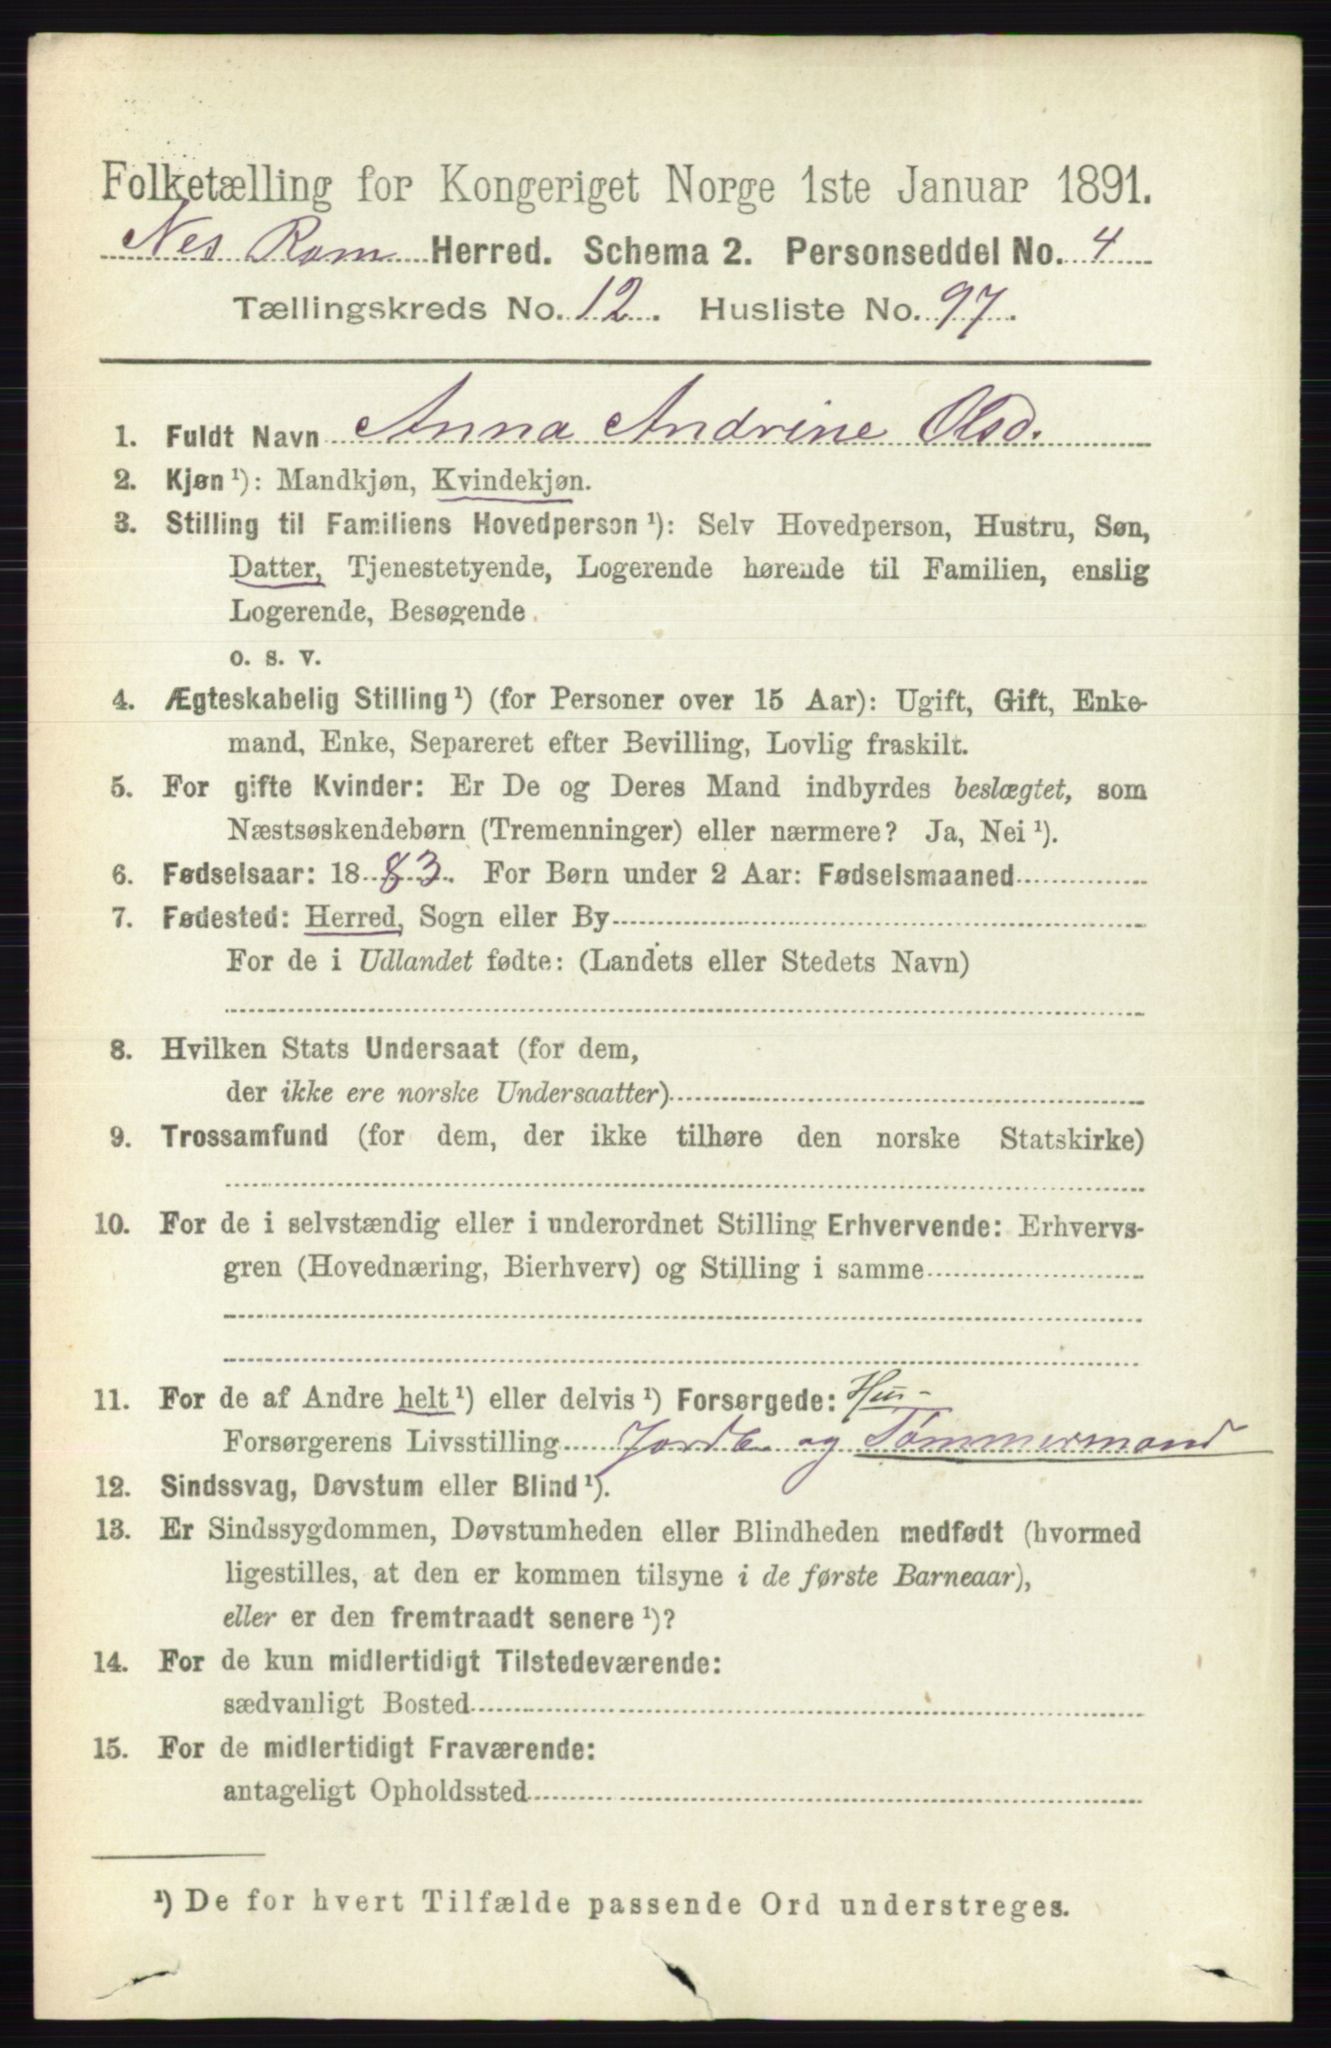 Folketælling for Kongeriget Norge 1ste Januar 1891.
Nes Rom Herred. Schema 2. Personseddel No. 4
Tællingskreds No. 12. Husliste No. 97.
1. Fuldt Navn Anna Andrine Olsd.
2. Kjøn ¹): Mandkjøn, Kvindekjøn.
3. Stilling til Familiens Hovedperson ¹): Selv Hovedperson, Hustru, Søn,
Datter, Tjenestetyende, Logerende hørende til Familien, enslig
Logerende, Besøgende
o. s. v.
4. Ægteskabelig Stilling ¹) (for Personer over 15 Aar): Ugift, Gift, Enke-
mand, Enke, Separeret efter Bevilling, Lovlig fraskilt.
5. For gifte Kvinder: Er De og Deres Mand indbyrdes beslægtet, som
Næstsøskendebørn (Tremenninger) eller nærmere? Ja, Nei ¹).
6. Fødselsaar: 1883. For Børn under 2 Aar: Fødselsmaaned
7. Fødested: Herred, Sogn eller By
For de i Udlandet fødte: (Landets eller Stedets Navn)
8. Hvilken Stats Undersaat (for dem,
der ikke ere norske Undersaatter)
9. Trossamfund (for dem, der ikke tilhøre den norske Statskirke)
10. For de i selvstændig eller i underordnet Stilling Erhvervende: Erhvervs-
gren (Hovednæring, Bierhverv) og Stilling i samme
11. For de af Andre helt ¹) eller delvis ¹) Forsørgede: Hus-
Forsørgerens Livsstilling Jordb. og Tømmermand
12. Sindssvag, Døvstum eller Blind ¹).
13. Er Sindssygdommen, Døvstumheden eller Blindheden medfødt (hvormed
ligestilles, at den er kommen tilsyne i de første Barneaar),
eller er den fremtraadt senere ¹)?
14. For de kun midlertidigt Tilstedeværende:
sædvanligt Bosted
15. For de midlertidigt Fraværende:
antageligt Opholdssted
¹) De for hvert Tilfælde passende Ord understreges.